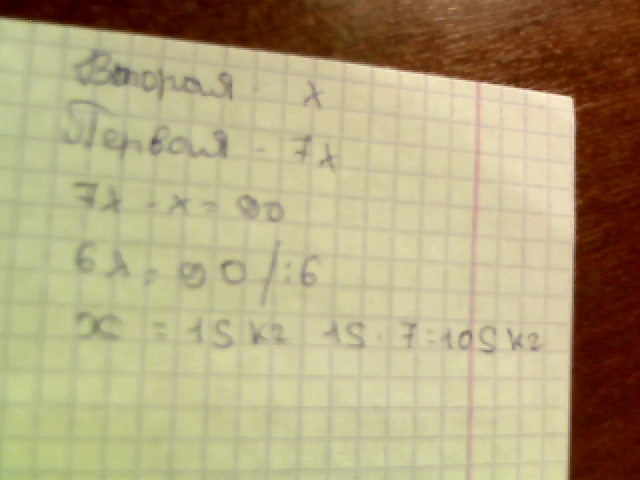 Вторая - x
Первая - 7x
7x - x = 90
6x = 90 /:6
x = 15 кг 15 · 7 = 105 кг